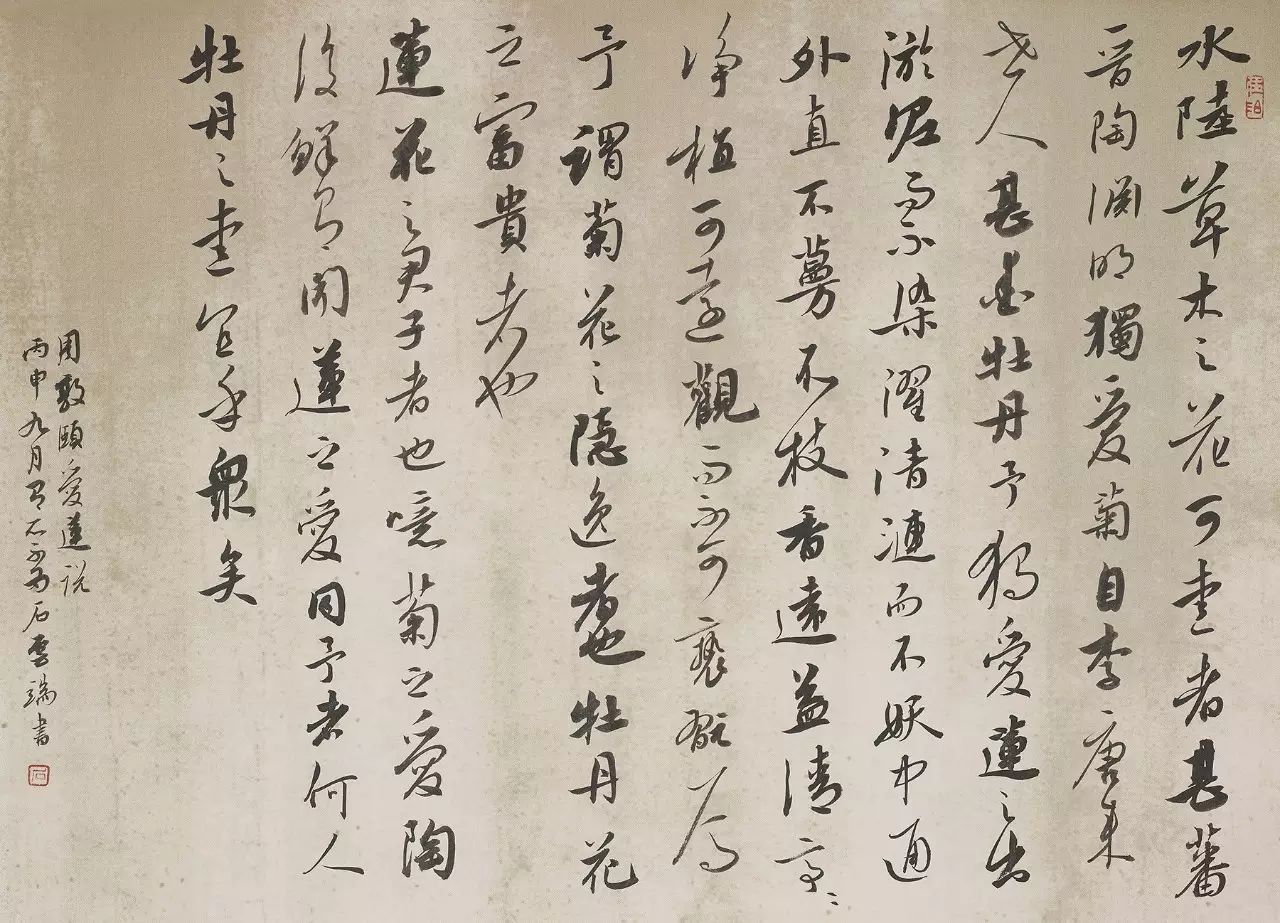 水陸草木之花可愛者甚蕃
晋陶渊明獨愛菊自李唐来
世人甚愛牡丹予独愛蓮之出
淤泥而不染濯清漣而不妖中通
外直不蔓不枝香遠益清亭〻
净植可遠觀而不可褻翫焉
予謂菊花之隐逸者也牡丹花
之富貴者也
蓮花之君子者也噫菊之愛陶
後鮮有聞蓮之愛同予者何人
牡丹之愛宜乎衆矣
周敦頤愛蓮説
丙申九月石雲端書
石